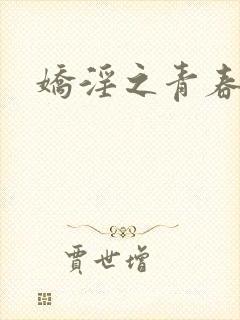 嬌淫之青春
賈世增